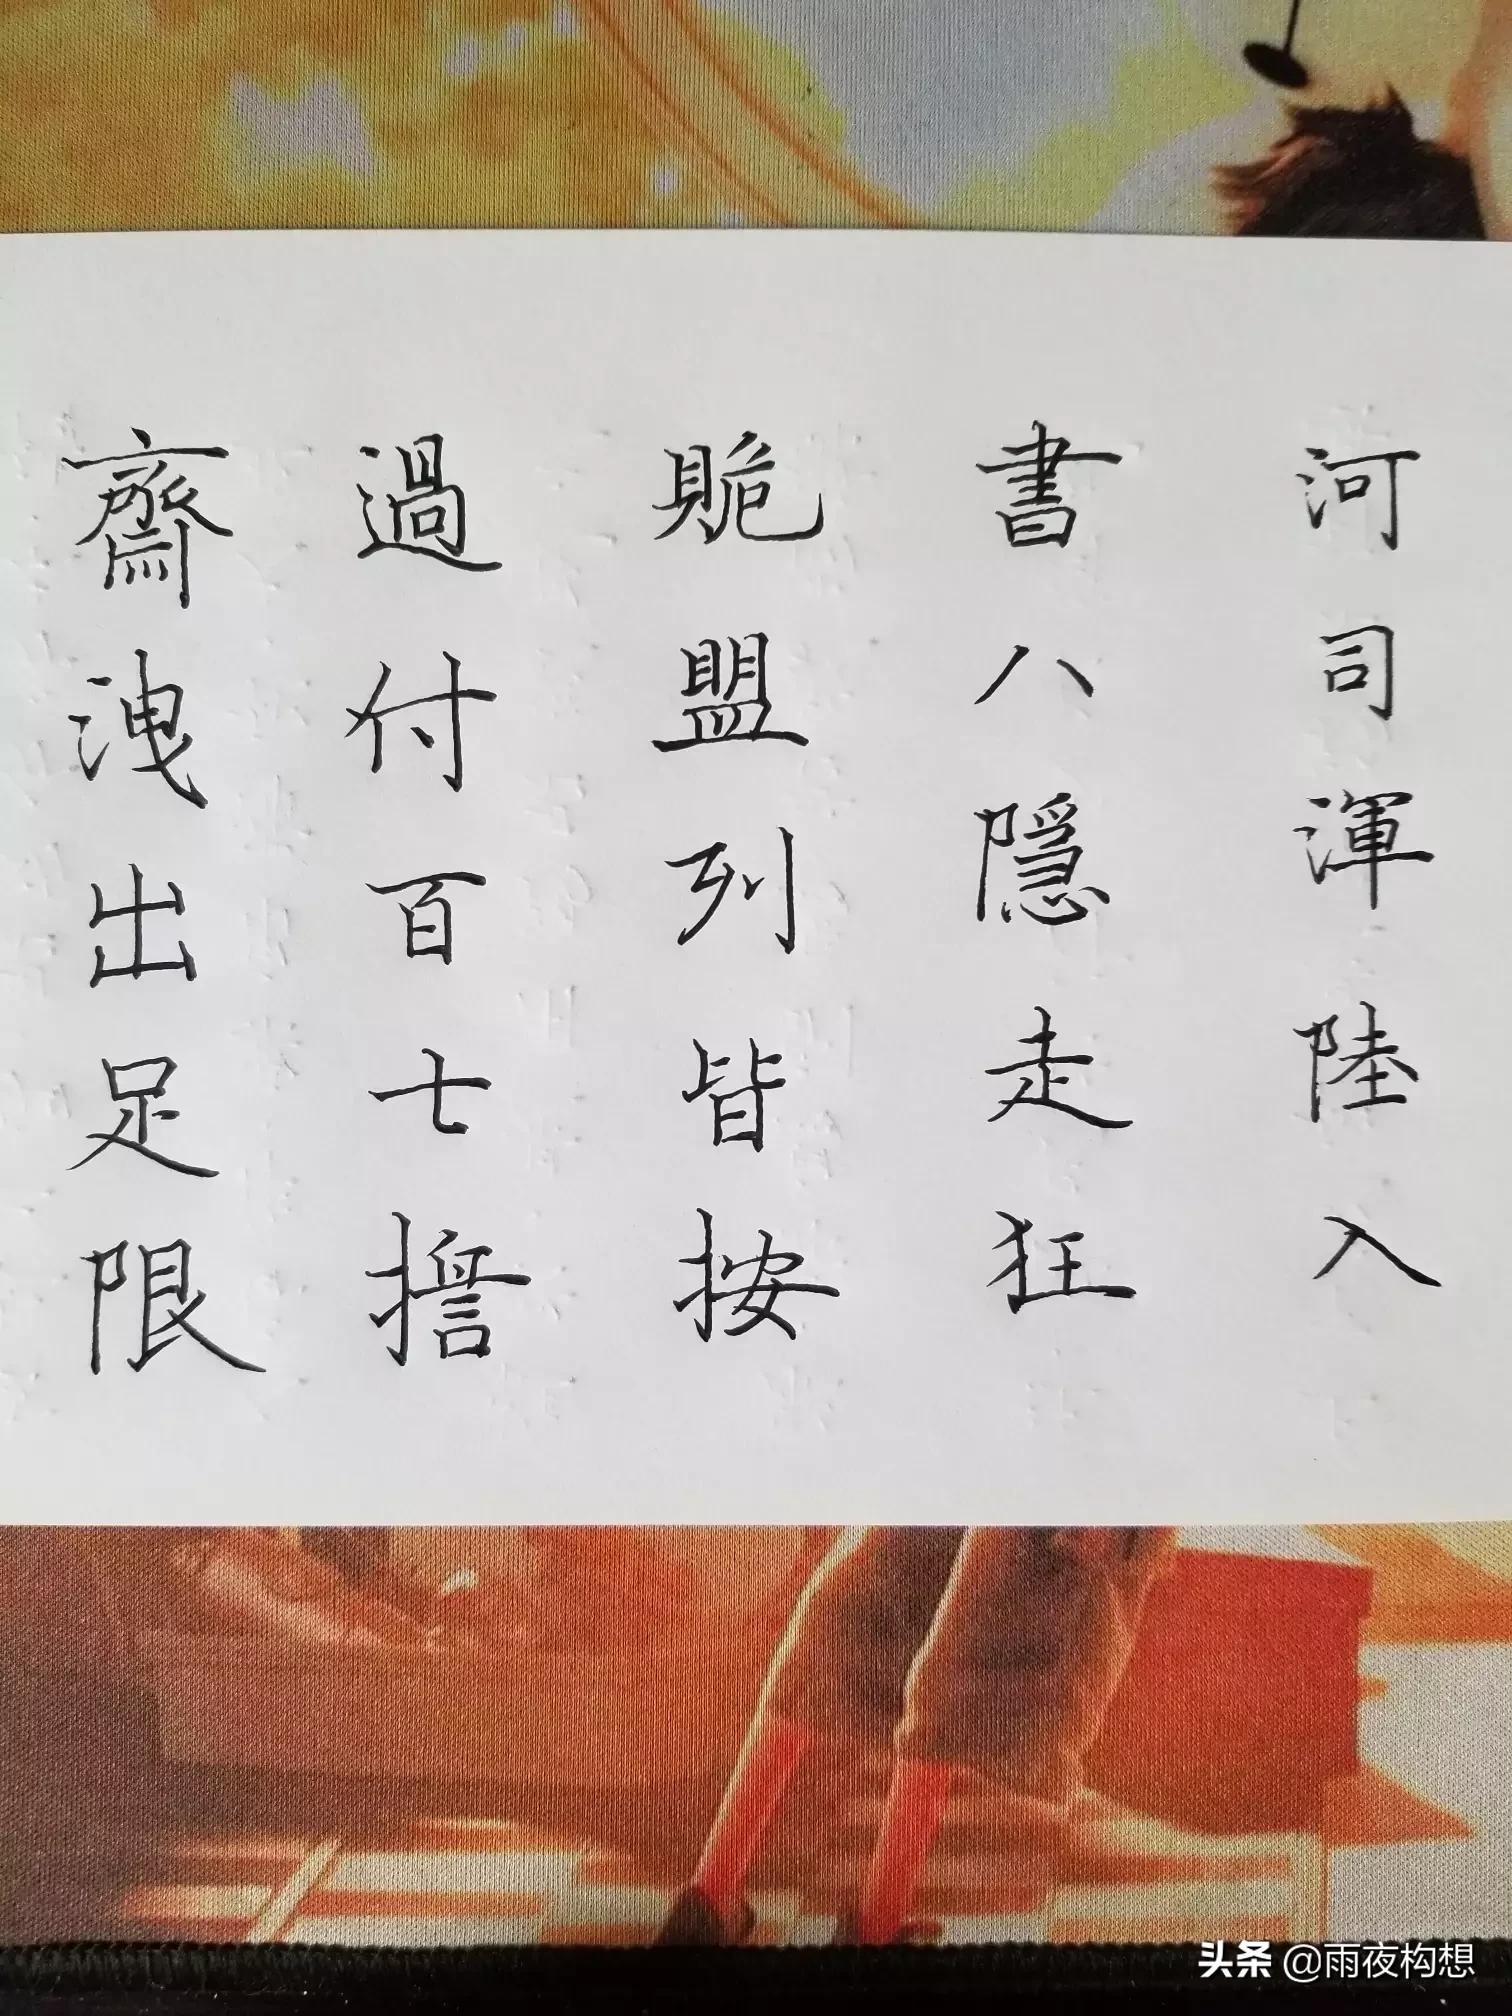 河司渾陸入
書八隱走狂
脆盟列皆按
過付百七擔
齋洩出足限
头条 @雨夜构想